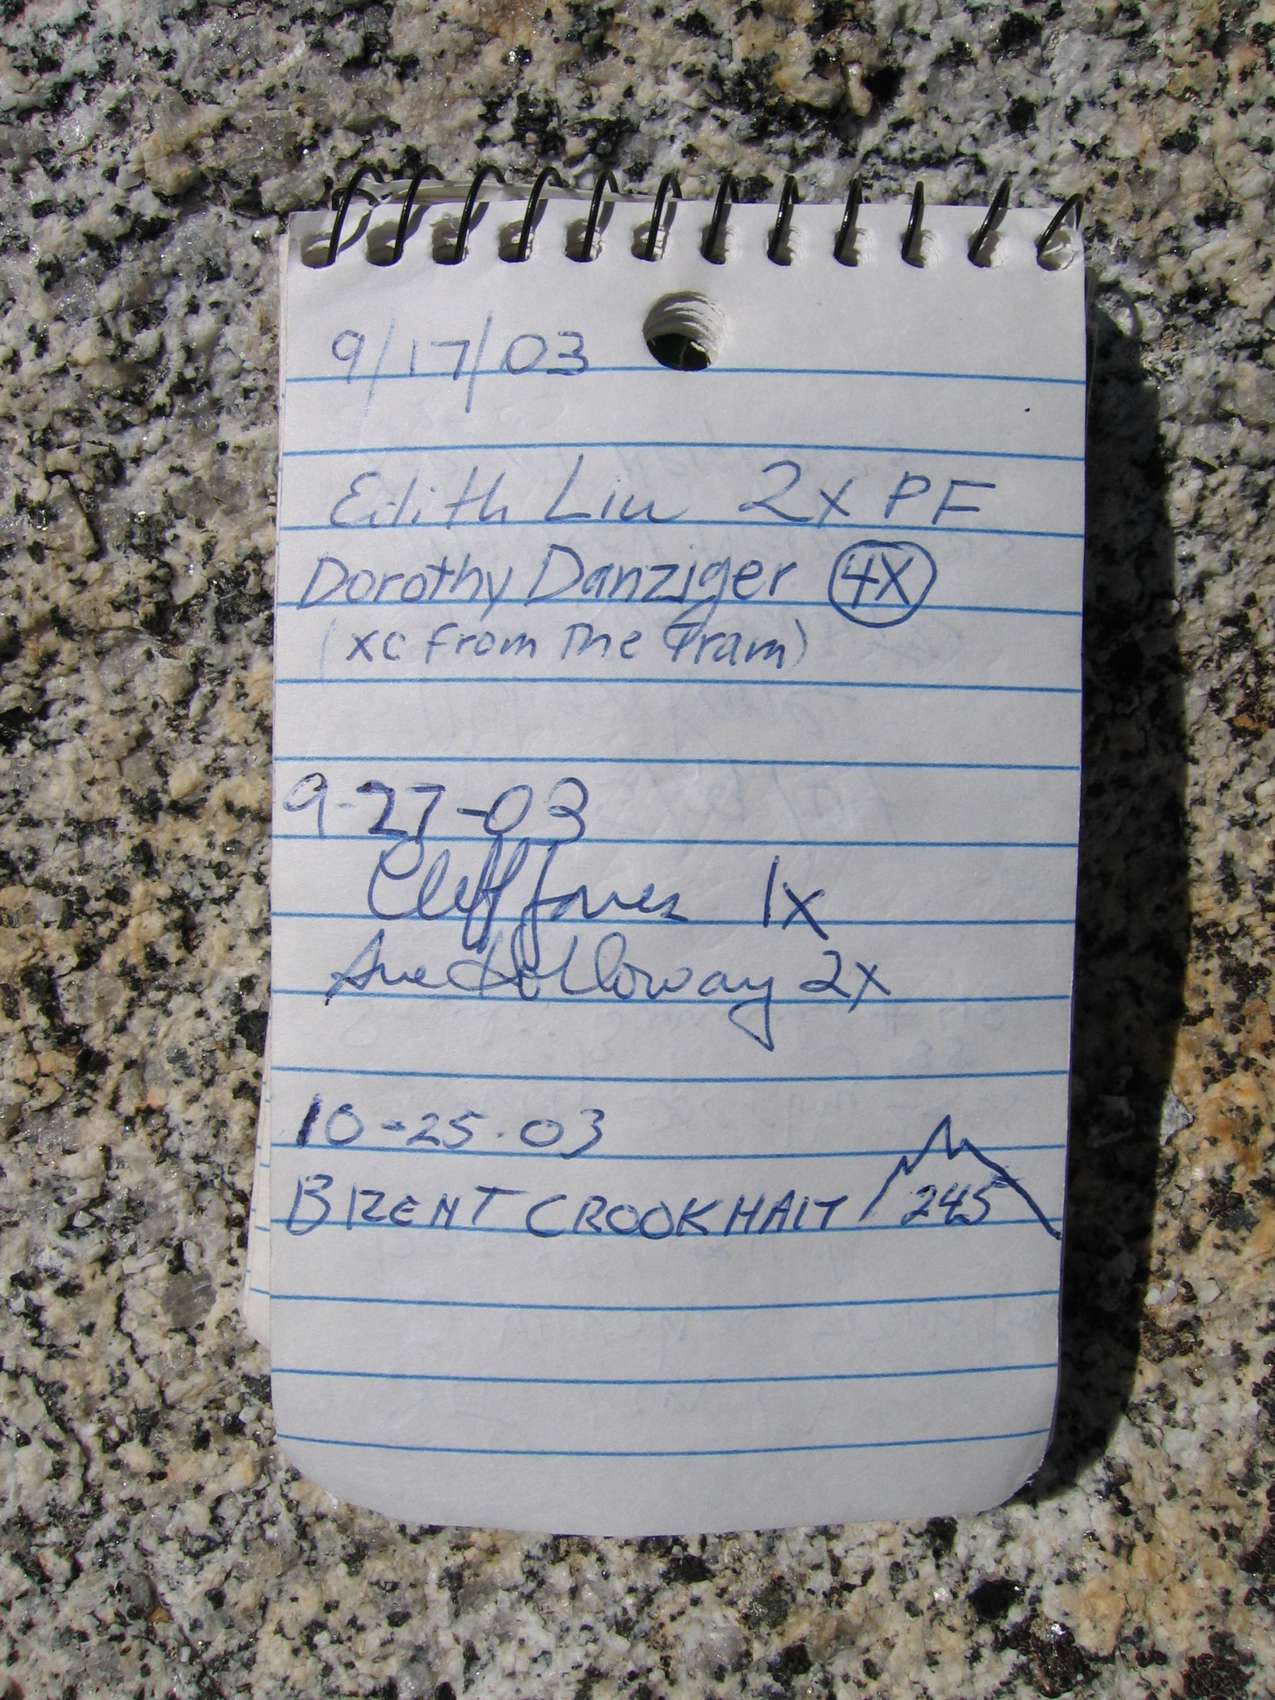 9/17/03
Edith Liu 2x PF
Dorothy Danziger 4X
(xc from The Tram)
9-27-03
Cliff Jones 1x
Sue Holloway 2x
10-25-03
BRENT CROOKHAIT 245